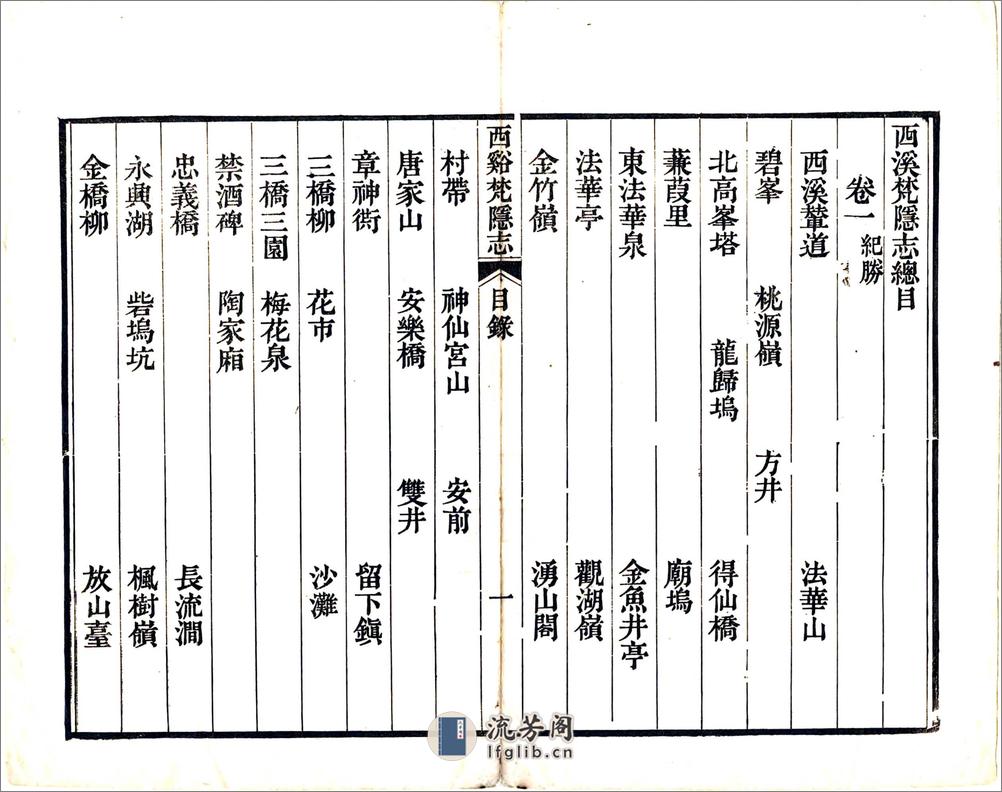 西溪梵隱志總目
卷一 紀勝
西溪輦道 法華山
碧峯 桃源嶺 方井
北高峯塔 龍歸塢 得仙橋
蒹葭里 廟塢
東法華泉 金魚井亭
法華亭 觀湖嶺
金竹嶺 湧山閣
西谿梵隱志 目錄 一
村帶 神仙宮山 安前
唐家山 安樂橋 雙井
章神衖 留下鎭
三橋柳 花市 沙灘
三橋三園 梅花泉
禁酒碑 陶家廂
忠義橋 長流澗
永興湖 砦塢坑 楓樹嶺
金橋柳 放山臺
流芳阁
lfglib.cn